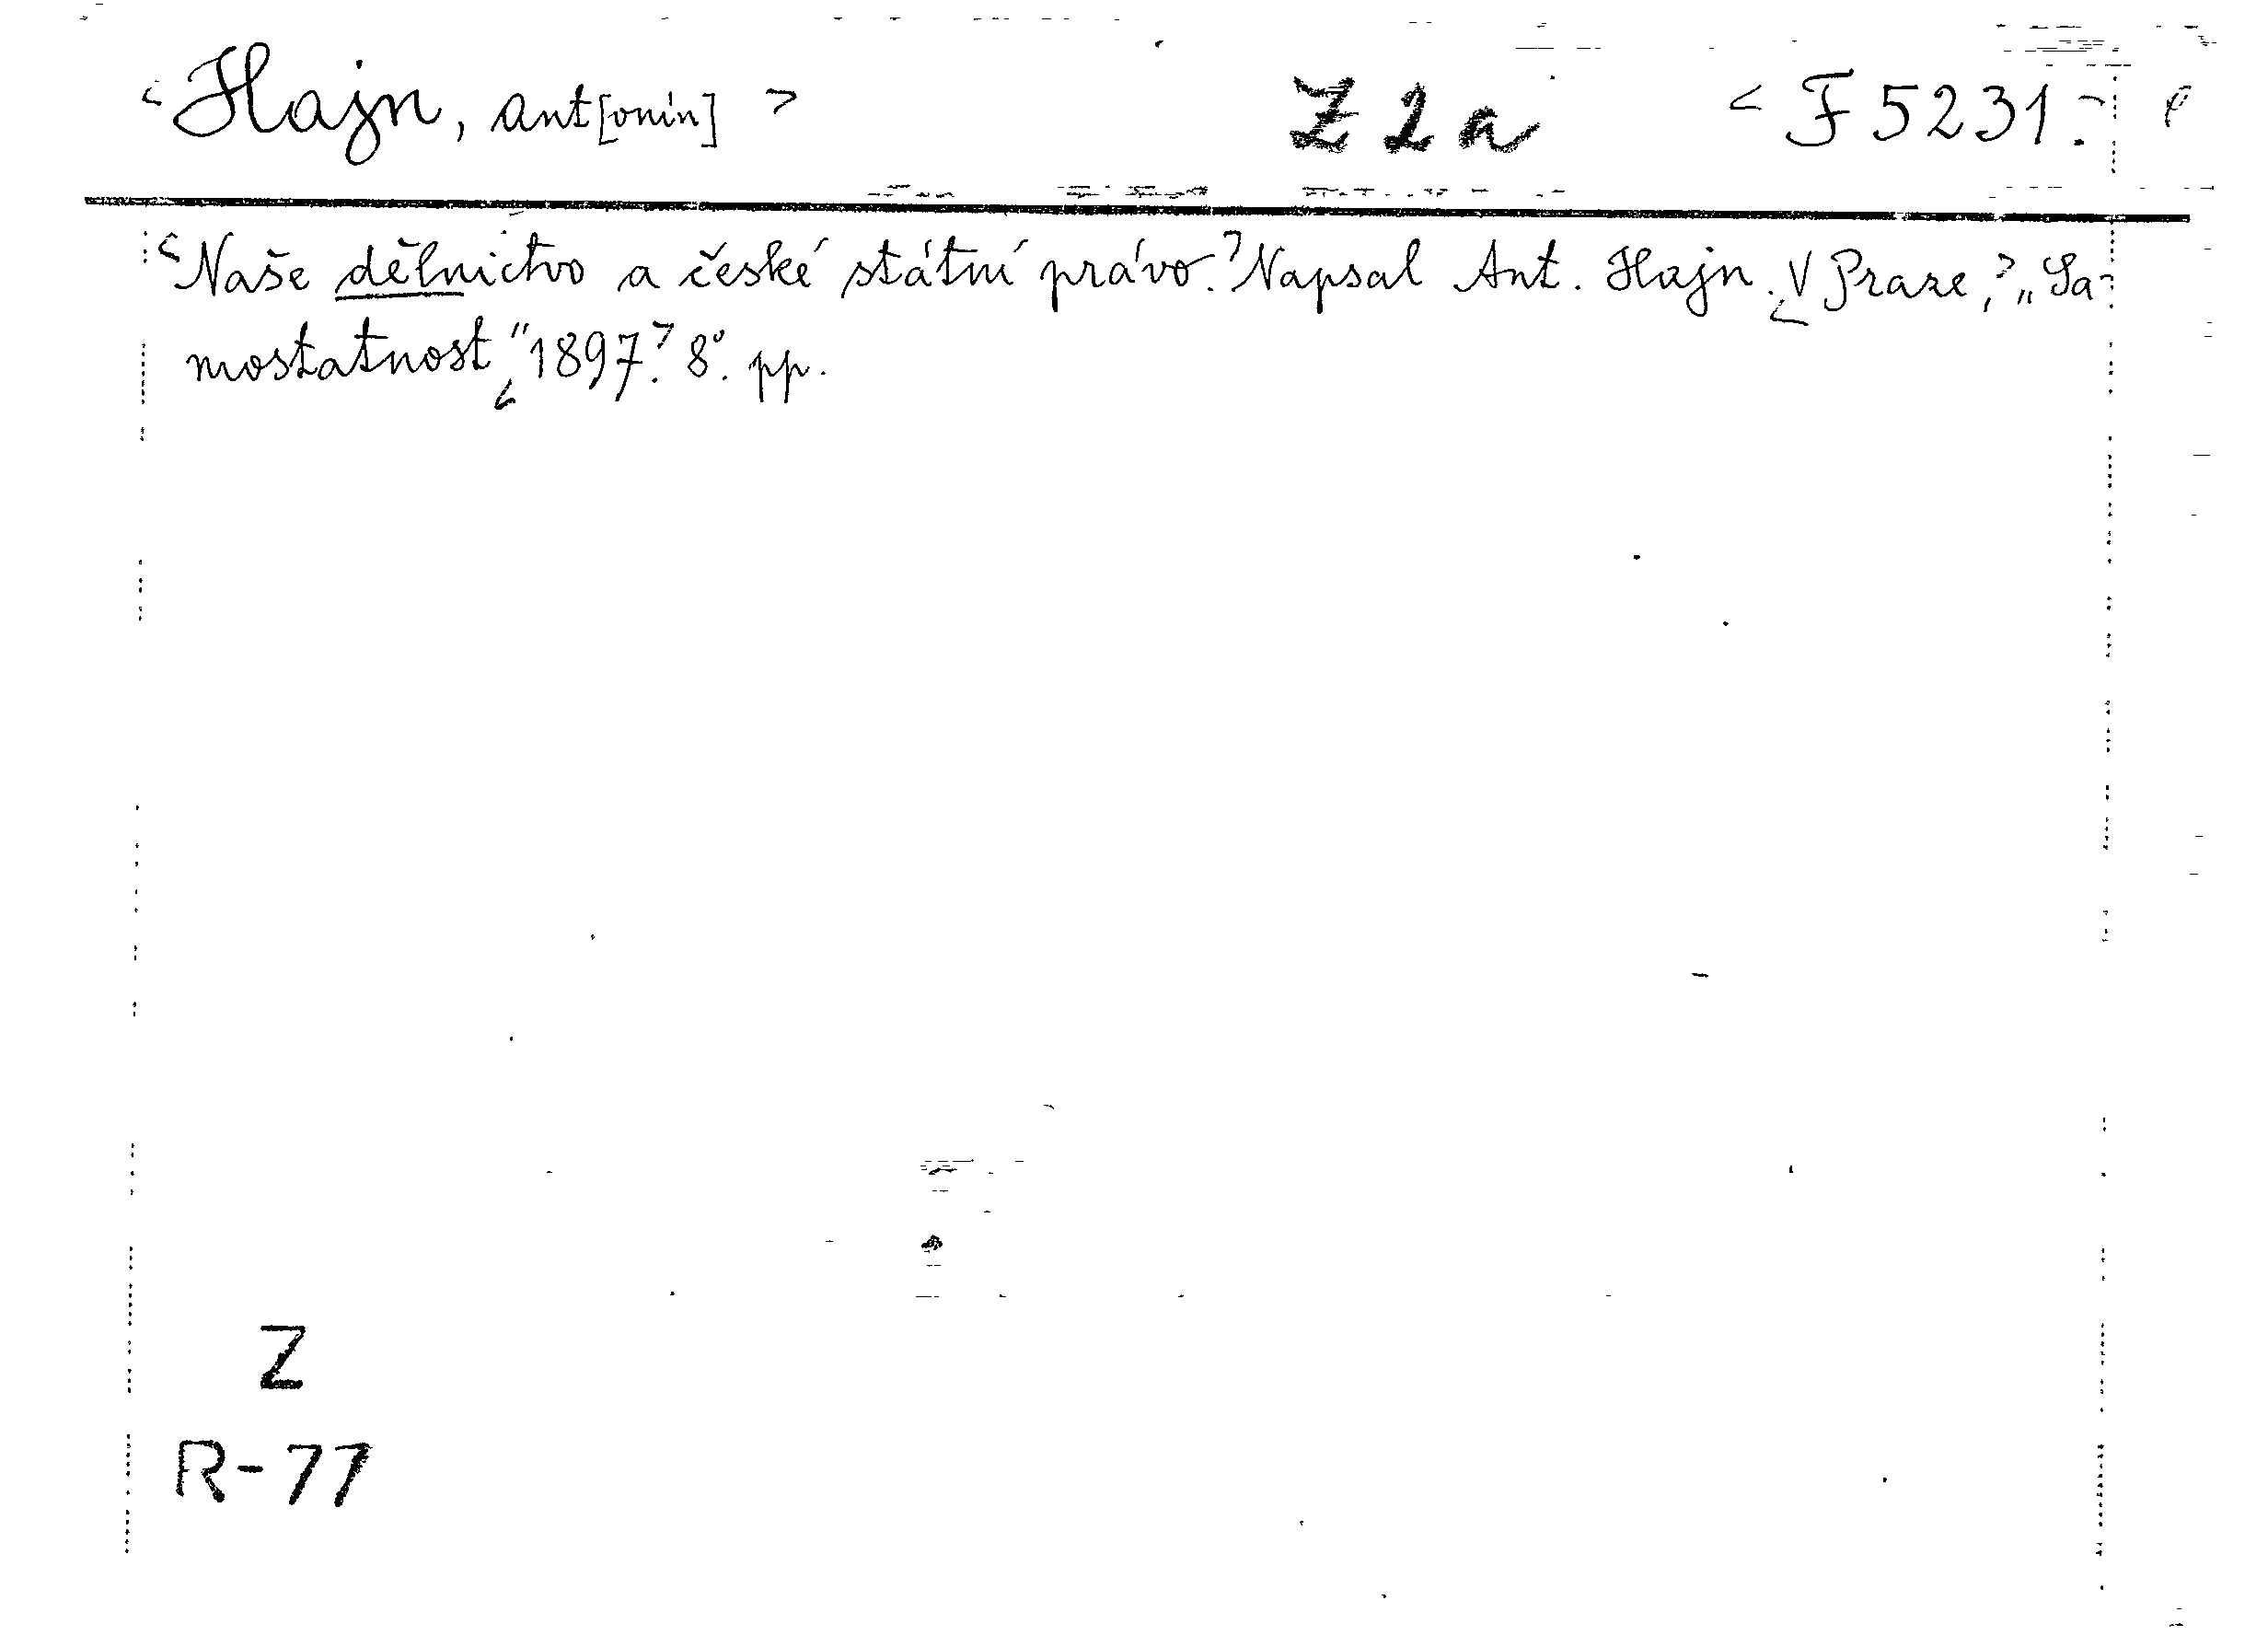 <Hajn, Ant[onín]> Z 2a <F 5231.
<Naše dělnictvo a české státní právo.> Napsal Ant. Hajn. <V Praze,> „Sa-
mostatnost“ <1897.> 8°. pp.
Z
R-77